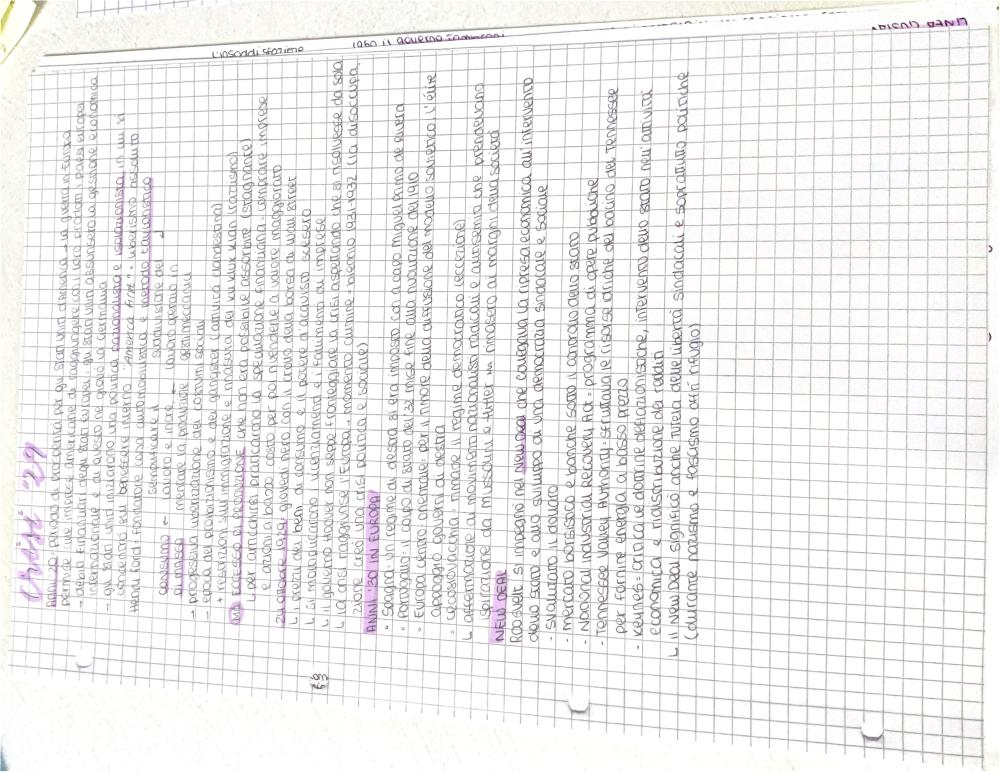 Crisi '29
ANNI '20: periodo di prosperità per gli Stati Uniti d'America → la guerra in Europa
permise alle imprese americane di raggiungere con i loro prodotti i paesi europei
→ debiti finanziari degli stati europei: gli Stati Uniti assunsero la gestione economica
internazionale e di questo ne giovò la Germania
→ gli Stati Uniti iniziarono una politica nazionalista e isolazionista, in cui si
concentrò sul benessere interno "America First". Liberismo assoluto
Henry Ford: fondatore casa automobilistica e metodo tayloristico
CONSUMO ← lavoro e inoltre ← semplificare il suddivisione del
DI MASSA lavoro operaio in
mentale la produzione gesti meccanici
→ progressiva liberalizzazione dei costumi sociali
→ epoca del proibizionismo e dei gangster (attività clandestina)
+ restrizioni sull'immigrazione e rinascita del Ku Klux Klan (razzismo)
MA ECCESSO DI PRODUZIONE che non era possibile assorbire (stagnante)
↳ per arricchirsi praticarono la speculazione finanziaria: comprare imprese
e azioni a basso costo per poi venderle a valore maggiorato
24 OTTOBRE 1929: giovedì nero con il crollo della borsa di Wall Street
↳ i prezzi dei beni di consumo e il potere d'acquisto scesero
↳ si moltiplicarono licenziamenti e i fallimenti di imprese
↳ il governo Hoover non seppe fronteggiare la crisi aspettando che si risolvesse da sola
↳ la crisi raggiunse l'Europa → momento culmine: biennio 1931-1932 (la disoccupa
zione creò una crisi politica e sociale)
ANNI '30 IN EUROPA
• Spagna: un regime di destra si era imposto con a capo Miguel Primo de Rivera
• Portogallo: il colpo di stato del '32 mise fine alla rivoluzione del 1910
• Europa centro orientale: per il timore della diffusione del modello sovietico, l'élite
appoggiò governi di destra
• Cecoslovacchia: rimane il regime democratico (eccezione)
↳ affermazione di movimenti nazionalisti radicali e antisemiti che prendevano
ispirazione da Mussolini e Hitler ma rimasero ai margini della società
NEW DEAL
Roosvelt si impegnò nel New Deal che collegava la ripresa economica all'intervento
dello stato e allo sviluppo di una democrazia sindacale e sociale
- svalutato il dollaro
- mercato borsistico e banche sotto il controllo dello stato
- National Industrial Recovery Act: programma di opere pubbliche
- Tennessee Valley Authority: sfruttare le risorse idriche del bacino del Tennessee
per fornire energia a basso prezzo
- Keynes: critica le dottrine deflazionistiche, intervento dello stato nell'attività
economica e ridistribuzione dei redditi
↳ il New Deal significò anche tutela delle libertà sindacali e soprattutto politiche
(durante nazismo e fascismo offrì rifugio)
63
L'insoddisfazione
1960 il governo Tambroni